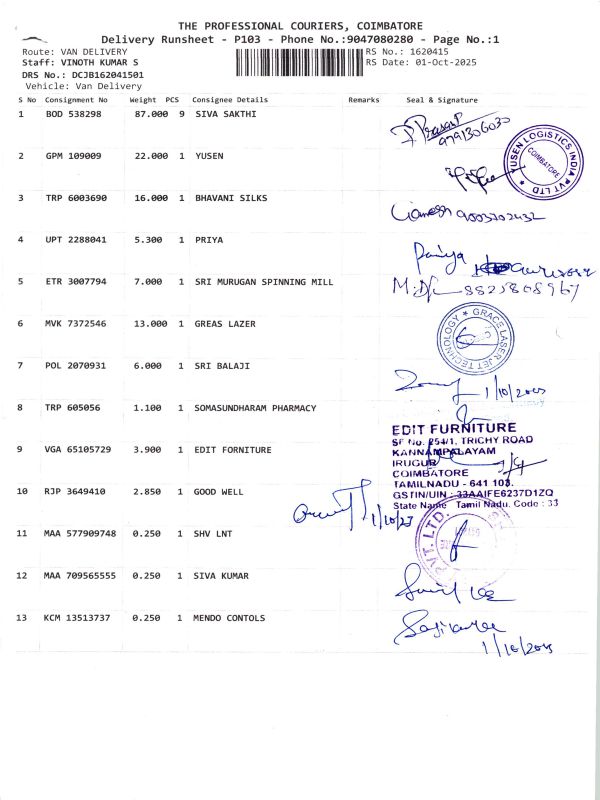 THE PROFESSIONAL COURIERS, COIMBATORE
Delivery Runsheet - P103 - Phone No.:9047080280 - Page No.:1
Route: VAN DELIVERY RS No.: 1620415
Staff: VINOTH KUMAR S RS Date: 01-Oct-2025
DRS No.: DCJB162041501
Vehicle: Van Delivery
S No Consignment No Weight PCS Consignee Details Remarks Seal & Signature
1 BOD 538298 87.000 9 SIVA SAKTHI
9791306030
2 GPM 109009 22.000 1 YUSEN
YUSEN LOGISTICS INDIA PVT LTD
COIMBATORE
3 TRP 6003690 16.000 1 BHAVANI SILKS
4 UPT 2288041 5.300 1 PRIYA
Priya
5 ETR 3007794 7.000 1 SRI MURUGAN SPINNING MILL
6 MVK 7372546 13.000 1 GREAS LAZER
GRACE LASER JET TECHNOLOGY
7 POL 2070931 6.000 1 SRI BALAJI
1/10/2025
8 TRP 605056 1.100 1 SOMASUNDHARAM PHARMACY
9 VGA 65105729 3.900 1 EDIT FORNITURE
EDIT FURNITURE
SF No. 254/1, TRICHY ROAD
KANNAMPALAYAM
IRUGUR
COIMBATORE
TAMILNADU - 641 103.
GSTIN/UIN : 33AAIFE6237D1ZQ
State Name Tamil Nadu. Code : 33
10 RJP 3649410 2.850 1 GOOD WELL
11 MAA 577909748 0.250 1 SHV LNT
PVT. LTD.
12 MAA 709565555 0.250 1 SIVA KUMAR
13 KCM 13513737 0.250 1 MENDO CONTOLS
1/10/2025